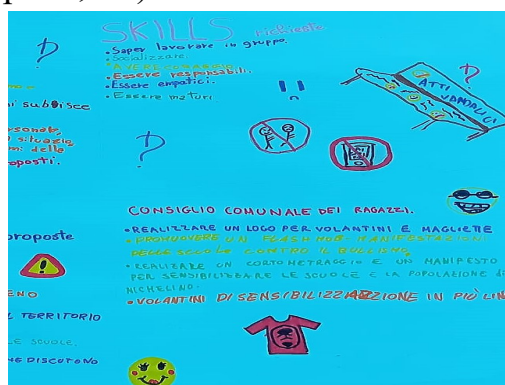 SKILLS richieste
• Saper lavorare in gruppo.
• Socializzare.
• Essere responsabili.
• Essere empatici.
• Essere maturi.
ATTI
VANDALICI
subisce
personale,
situazio
delle
oposti.
CONSIGLIO COMUNALE DEI RAGAZZI.
• REALIZZARE UN LOGO PER VOLANTINI E MAGLIETTE
• PROMUOVERE UN FLASH MOB MANIFESTAZION
DELLE SCUOLE CONTRO IL BULLISMO.
• REALIZZARE UN CORTOMETRAGGIO E UN MANIFESTO
PER SENSIBILIZZARE LE SCUOLE E LA POPOLAZIONE di
NICHELINO.
• VOLANTINI DI SENSIBILIZZAZIONE IN PIÙ LIN
proposte
ENO
TERRITORIO
LE SCUOLE.
NE DISCUTONO